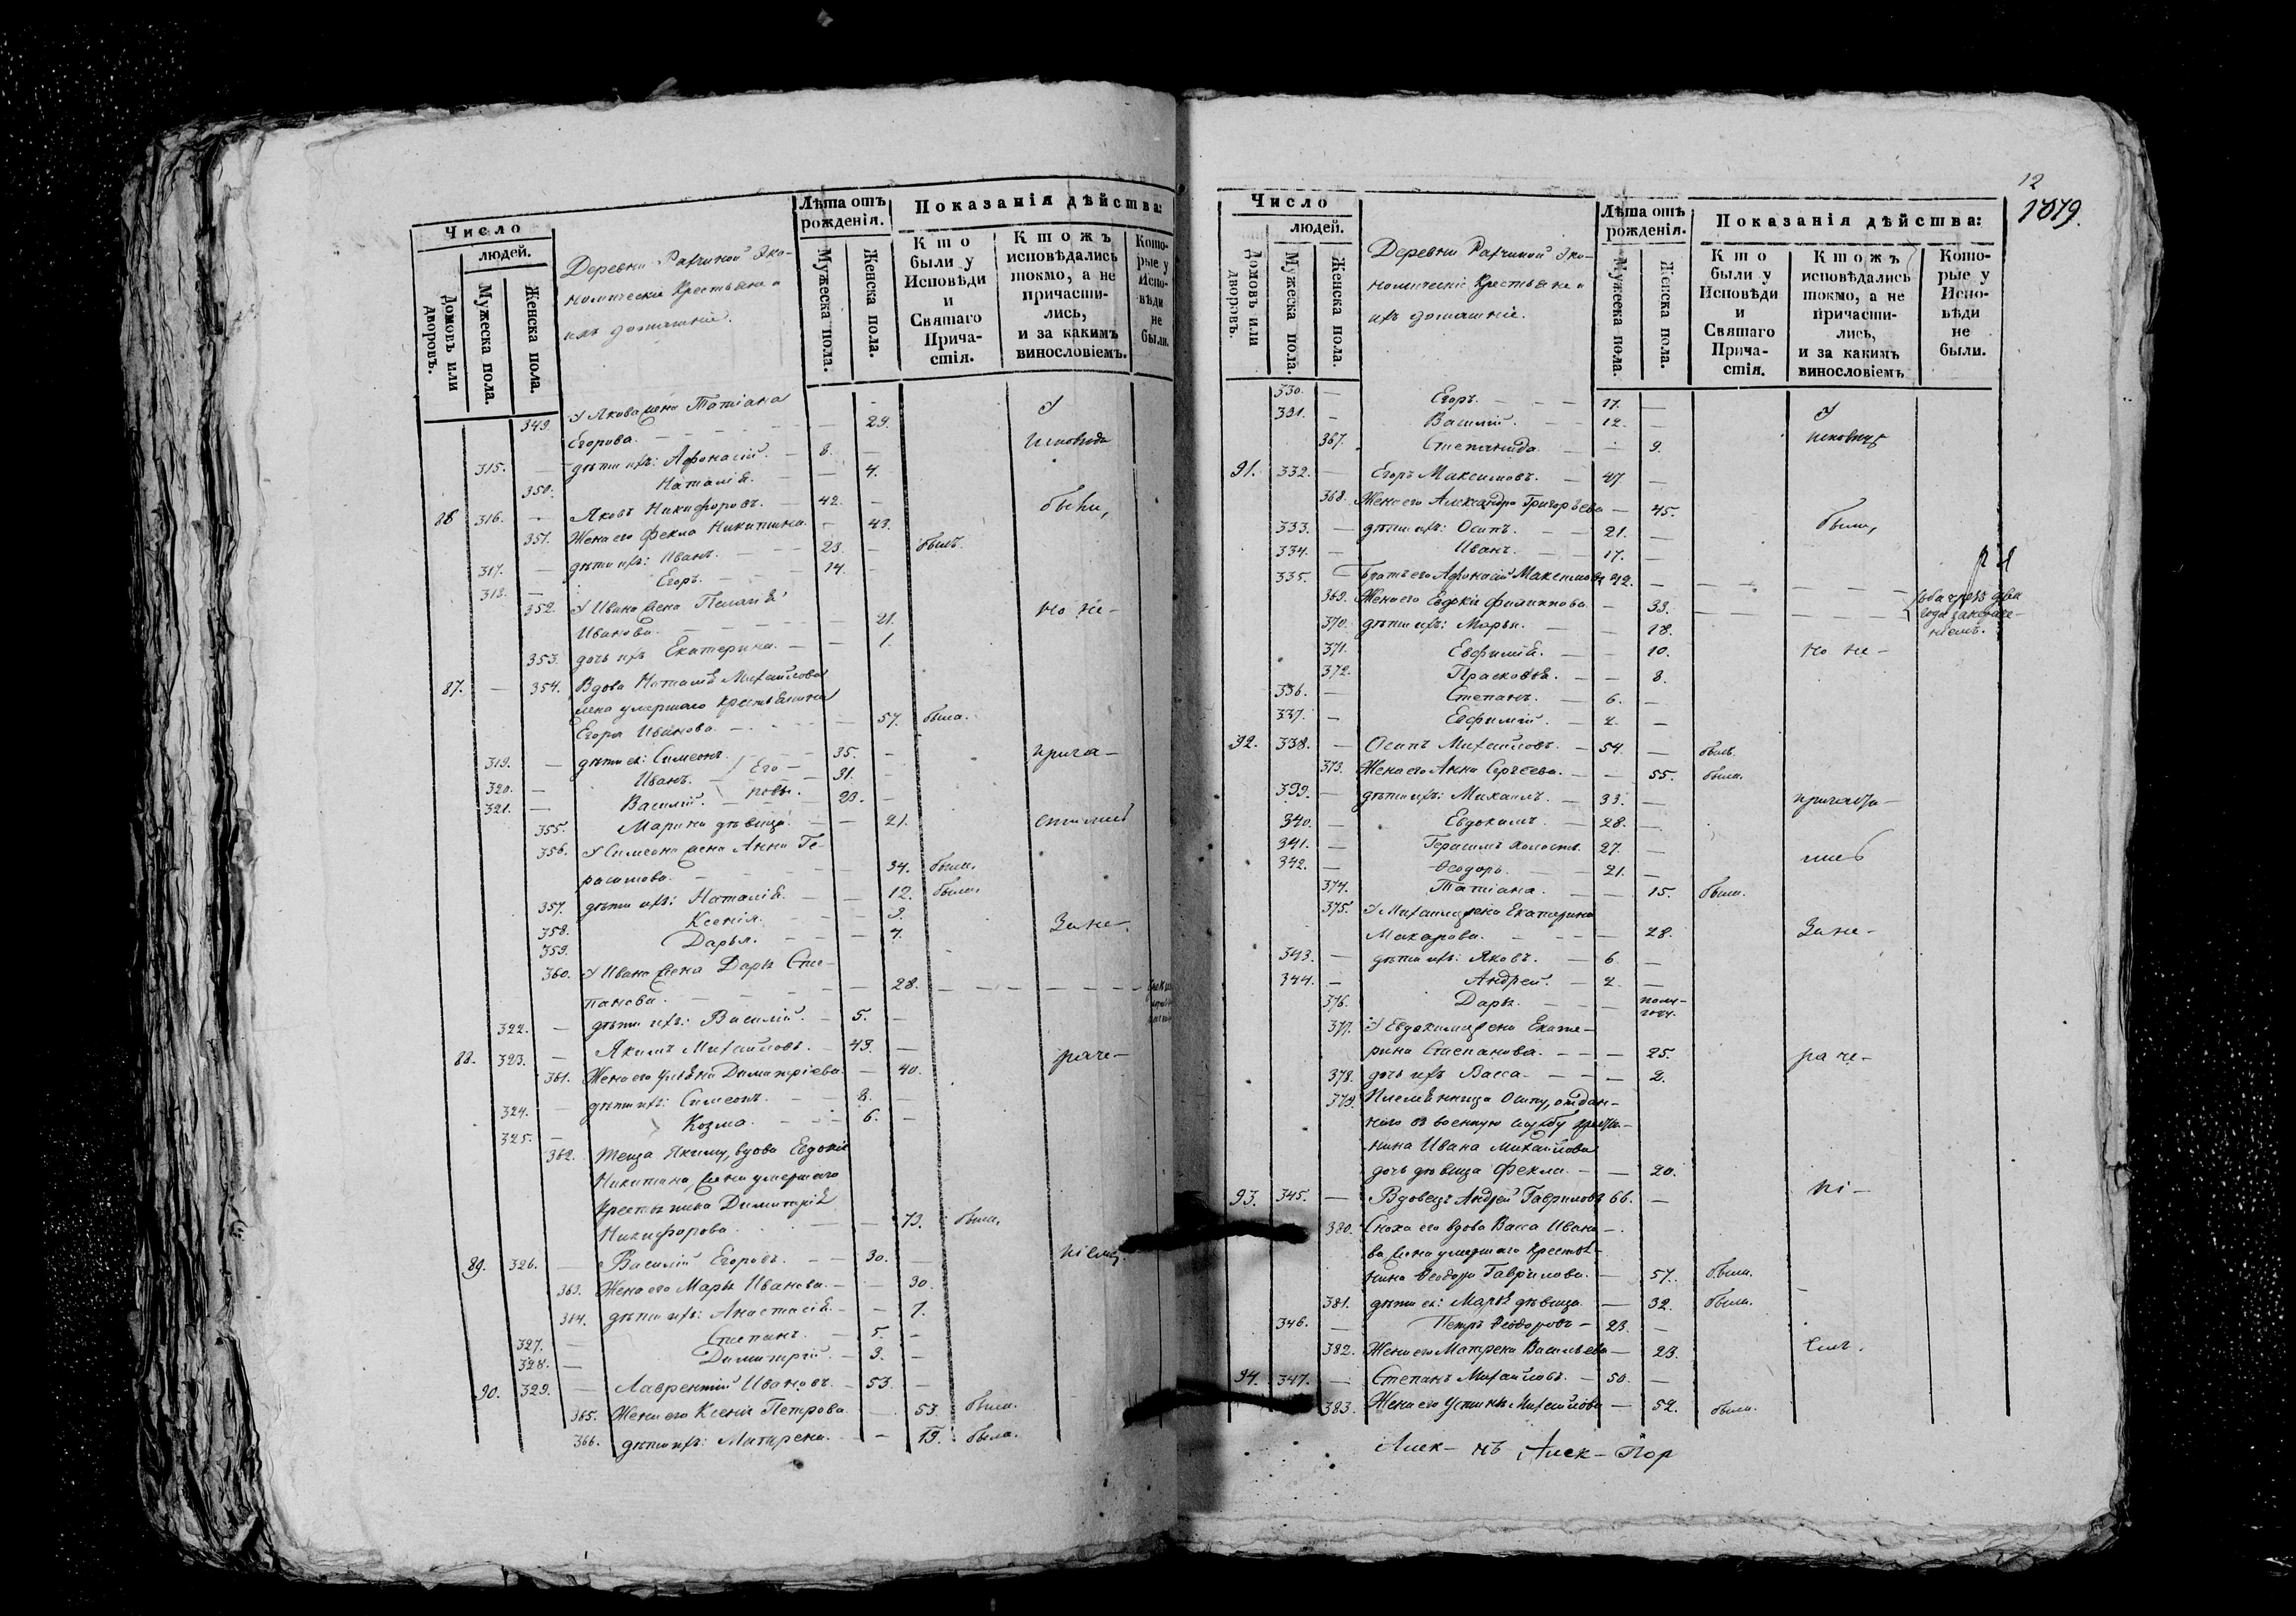 Число
людей.
Домовъ или дворовъ.
Мужеска пола.
Женска пола.
Деревни Ратчиной Эко-
номическіе Крестьяне и
ихъ домашніе.
Лѣта отъ рожденія.
Мужеска пола.
Женска пола.
Показанія дѣйства:
Кто были у Исповѣди и Святаго Прича-стія.
Ктожъ исповѣдались токмо, а не причасти-лись, и за какимъ винословіемъ.
Кото-рые у Испо-вѣди не были.
349. У Якова жена Татіана
Егорова. — 29. У
315. — дѣти ихъ: Афонасій. — 8. — исповѣди
350. Наталія. — — 4.
86 316. — Яковъ Никифоровъ. — 42. — были,
351. Жена его Фекла Никитина. — 43.
317. — дѣти ихъ: Иванъ. — 23. — былъ.
318. — Егоръ. — 14. —
352. У Ивана жена Пелагія
Иванова. — 21. но не-
353. дочь ихъ Екатерина. — — 1.
87. — 354. Вдова Наталія Михайлова
жена умершаго крестьянина
Егора Иванова. — — 57. была.
319. — дѣти ея: Симеонъ. — 35. — прича-
320. — Иванъ. Его- 31. —
321. — Василій. ровы. 23. —
355. Марина дѣвица. — — 21. стились
356. У Симеона жена Анна Ге-
расимова. — 34. была.
357. дѣти ихъ: Наталія. — — 12. была.
358. Ксенія. — 9.
359. Дарья. — — 7. За не-
360. У Ивана жена Дарья Сте-
панова. — — 28. —
322. — дѣти ихъ: Василій. — 5. —
88. 323. — Якимъ Михайловъ. — 43. — раче-
361. Жена его Ульяна Димитріева. — 40.
324. — дѣти ихъ: Симеонъ. — 8. —
325. — Козма. — 6. —
362. Теща Якиму, вдова Евдокія
Никитина, жена умершаго
крестьянина Димитрія
Никифорова — 73. была.
89. 326. — Василій Егоровъ. — 30. — ніемъ.
363. Жена его Марья Иванова. — — 30.
364. дѣти ихъ: Анастасія. — — 7.
327. — Степанъ. — 5. —
328. — Димитрій. — 3. —
90. 329. — Лаврентій Ивановъ. — 53. —
365. Жена его Ксенія Петрова. — 53. была.
366. дѣти ихъ: Матрена. — — 19. была.
12
1019.
Число
людей.
Домовъ или дворовъ.
Мужеска пола.
Женска пола.
Деревни Ратчиной Эко-
номическіе Крестьяне и
ихъ домашніе.
Лѣта отъ рожденія.
Мужеска пола.
Женска пола.
Показанія дѣйства:
Кто были у Исповѣди и Святаго Прича-стія.
Ктожъ исповѣдались токмо, а не причасти-лись, и за какимъ винословіемъ
Кото-рые у Испо-вѣди не были.
330. — Егоръ. — 17. —
331. — Василій. — 12. — У
367. Степанида. — — 9. исповѣди
91. 332. — Егоръ Максимовъ. — 47 —
368. Жена его Александра Григорьева — 45.
333. — дѣти ихъ: Осипъ. — 21. — были,
334. — Иванъ. — 17. —
335. — Братъ его Афонасій Максимовъ 42. —
369. Жена его Евдокія Филиппова — 33. — оба чрезъ два
года за нераче-
ніемъ.
370. дѣти ихъ: Марья. — — 18.
371. Евфимія. — — 10. но не-
372. Прасковья. — — 8.
336. — Степанъ. — 6. —
337. — Евфимій. — 2. —
92. 338. — Осипъ Михайловъ. — 54. — былъ.
373. Жена его Анна Сергѣева. — — 55. была.
339. — дѣти ихъ: Михаилъ. — 33. — причасти-
340. — Евдокимъ. — 28. —
341. — Герасимъ холостъ. 27. —
342. — Ѳеодоръ. — 21. — лись
374. Татіана. — — 15. была.
375. У Михаила жена Екатерина
Макарова. — — 28. За не-
343. — дѣти ихъ: Яковъ. — 6 —
344. — Андрей. — 2. —
376. Дарья. — — полу-
годъ.
377. У Евдокима жена Екате-
рина Степанова. — — 25. раче-
378. дочь ихъ Васса — — 2.
379. Племянница Осипу, отдан-
наго въ военную службу крестья-
нина Ивана Михайлова
дочь дѣвица Фекла. — — 20.
93. 345. — Вдовецъ Андрей Гавриловъ 66. — ні-
380. Сноха его вдова Васса Ивано-
ва жена умершаго крестья-
нина Ѳеодора Гаврилова. — 57. была.
381. дѣти ея: Марья дѣвица. — 32. была.
346. — Петръ Ѳеодоровъ — 23. —
382. Жена его Матрена Васильева — 23. емъ.
94. 347. — Степанъ Михайловъ. — 50. —
383. Жена его Устинья Михайлова — 52. была.
Алек- нъ Алек- Пор